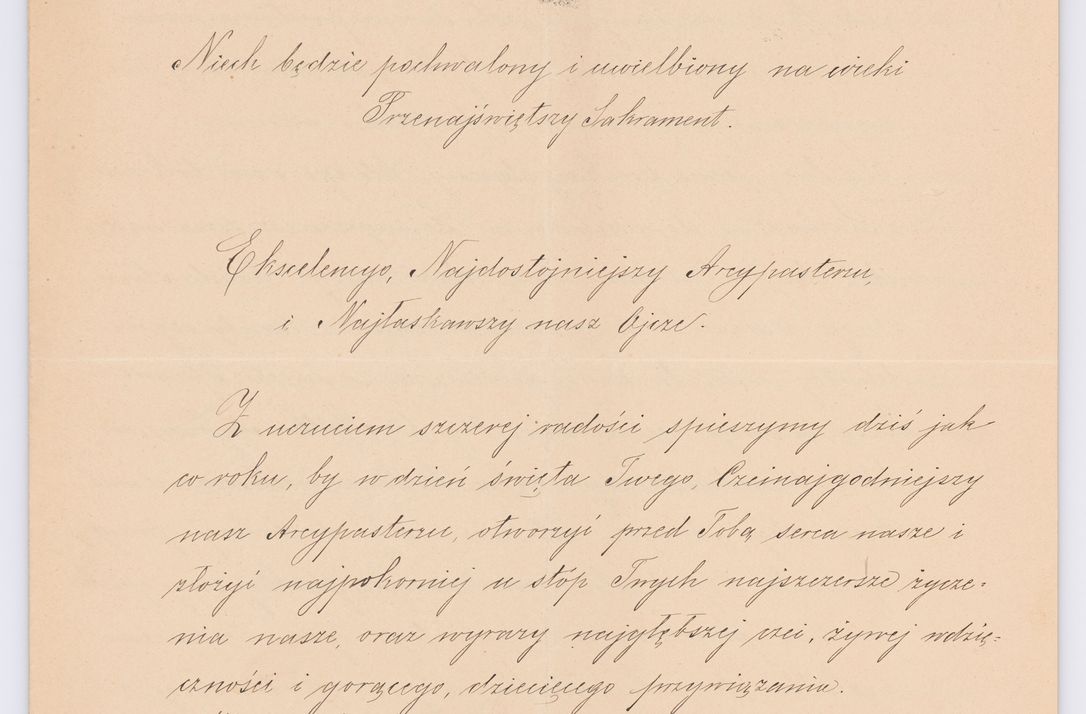 Niech będzie pochwalony i uwielbiony na wieki
Przenajświętszy Sakrament.
Ekscelencyo, Najdostojniejszy Arcypasterzu,
i Najłaskawszy nasz Ojcze.
Z uczuciem szczerej radości spieszymy dziś jak
co roku, by w dzień święta Twego, Czcinajgodniejszy
nasz Arcypasterzu, otworzyć przed Tobą serca nasze i
złożyć najpokorniej u stóp Twych najszczersze życze-
nia nasze, oraz wyrazy najgłębszej czci, żywej wdzię-
czności i gorącego, dziecięcego przywiązania.